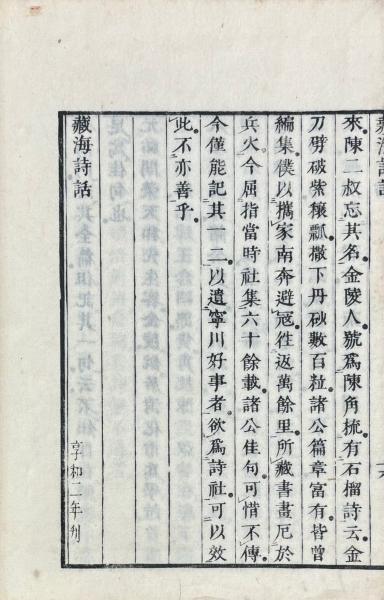 來陳二叔忘其名金陵人號爲陳角梳有石榴詩云金
刀劈破紫穰瓢撒下丹砂數百粒諸公篇章富有皆曾
編集僕以攜家南奔避冦徃返萬餘里所藏書畫厄於
兵火今屈指當時社集六十餘載諸公佳句可惜不傳
今僅能記其一二以遺寧川好事者欲爲詩社可以效
此不亦善乎
藏海詩話
享和二年刊